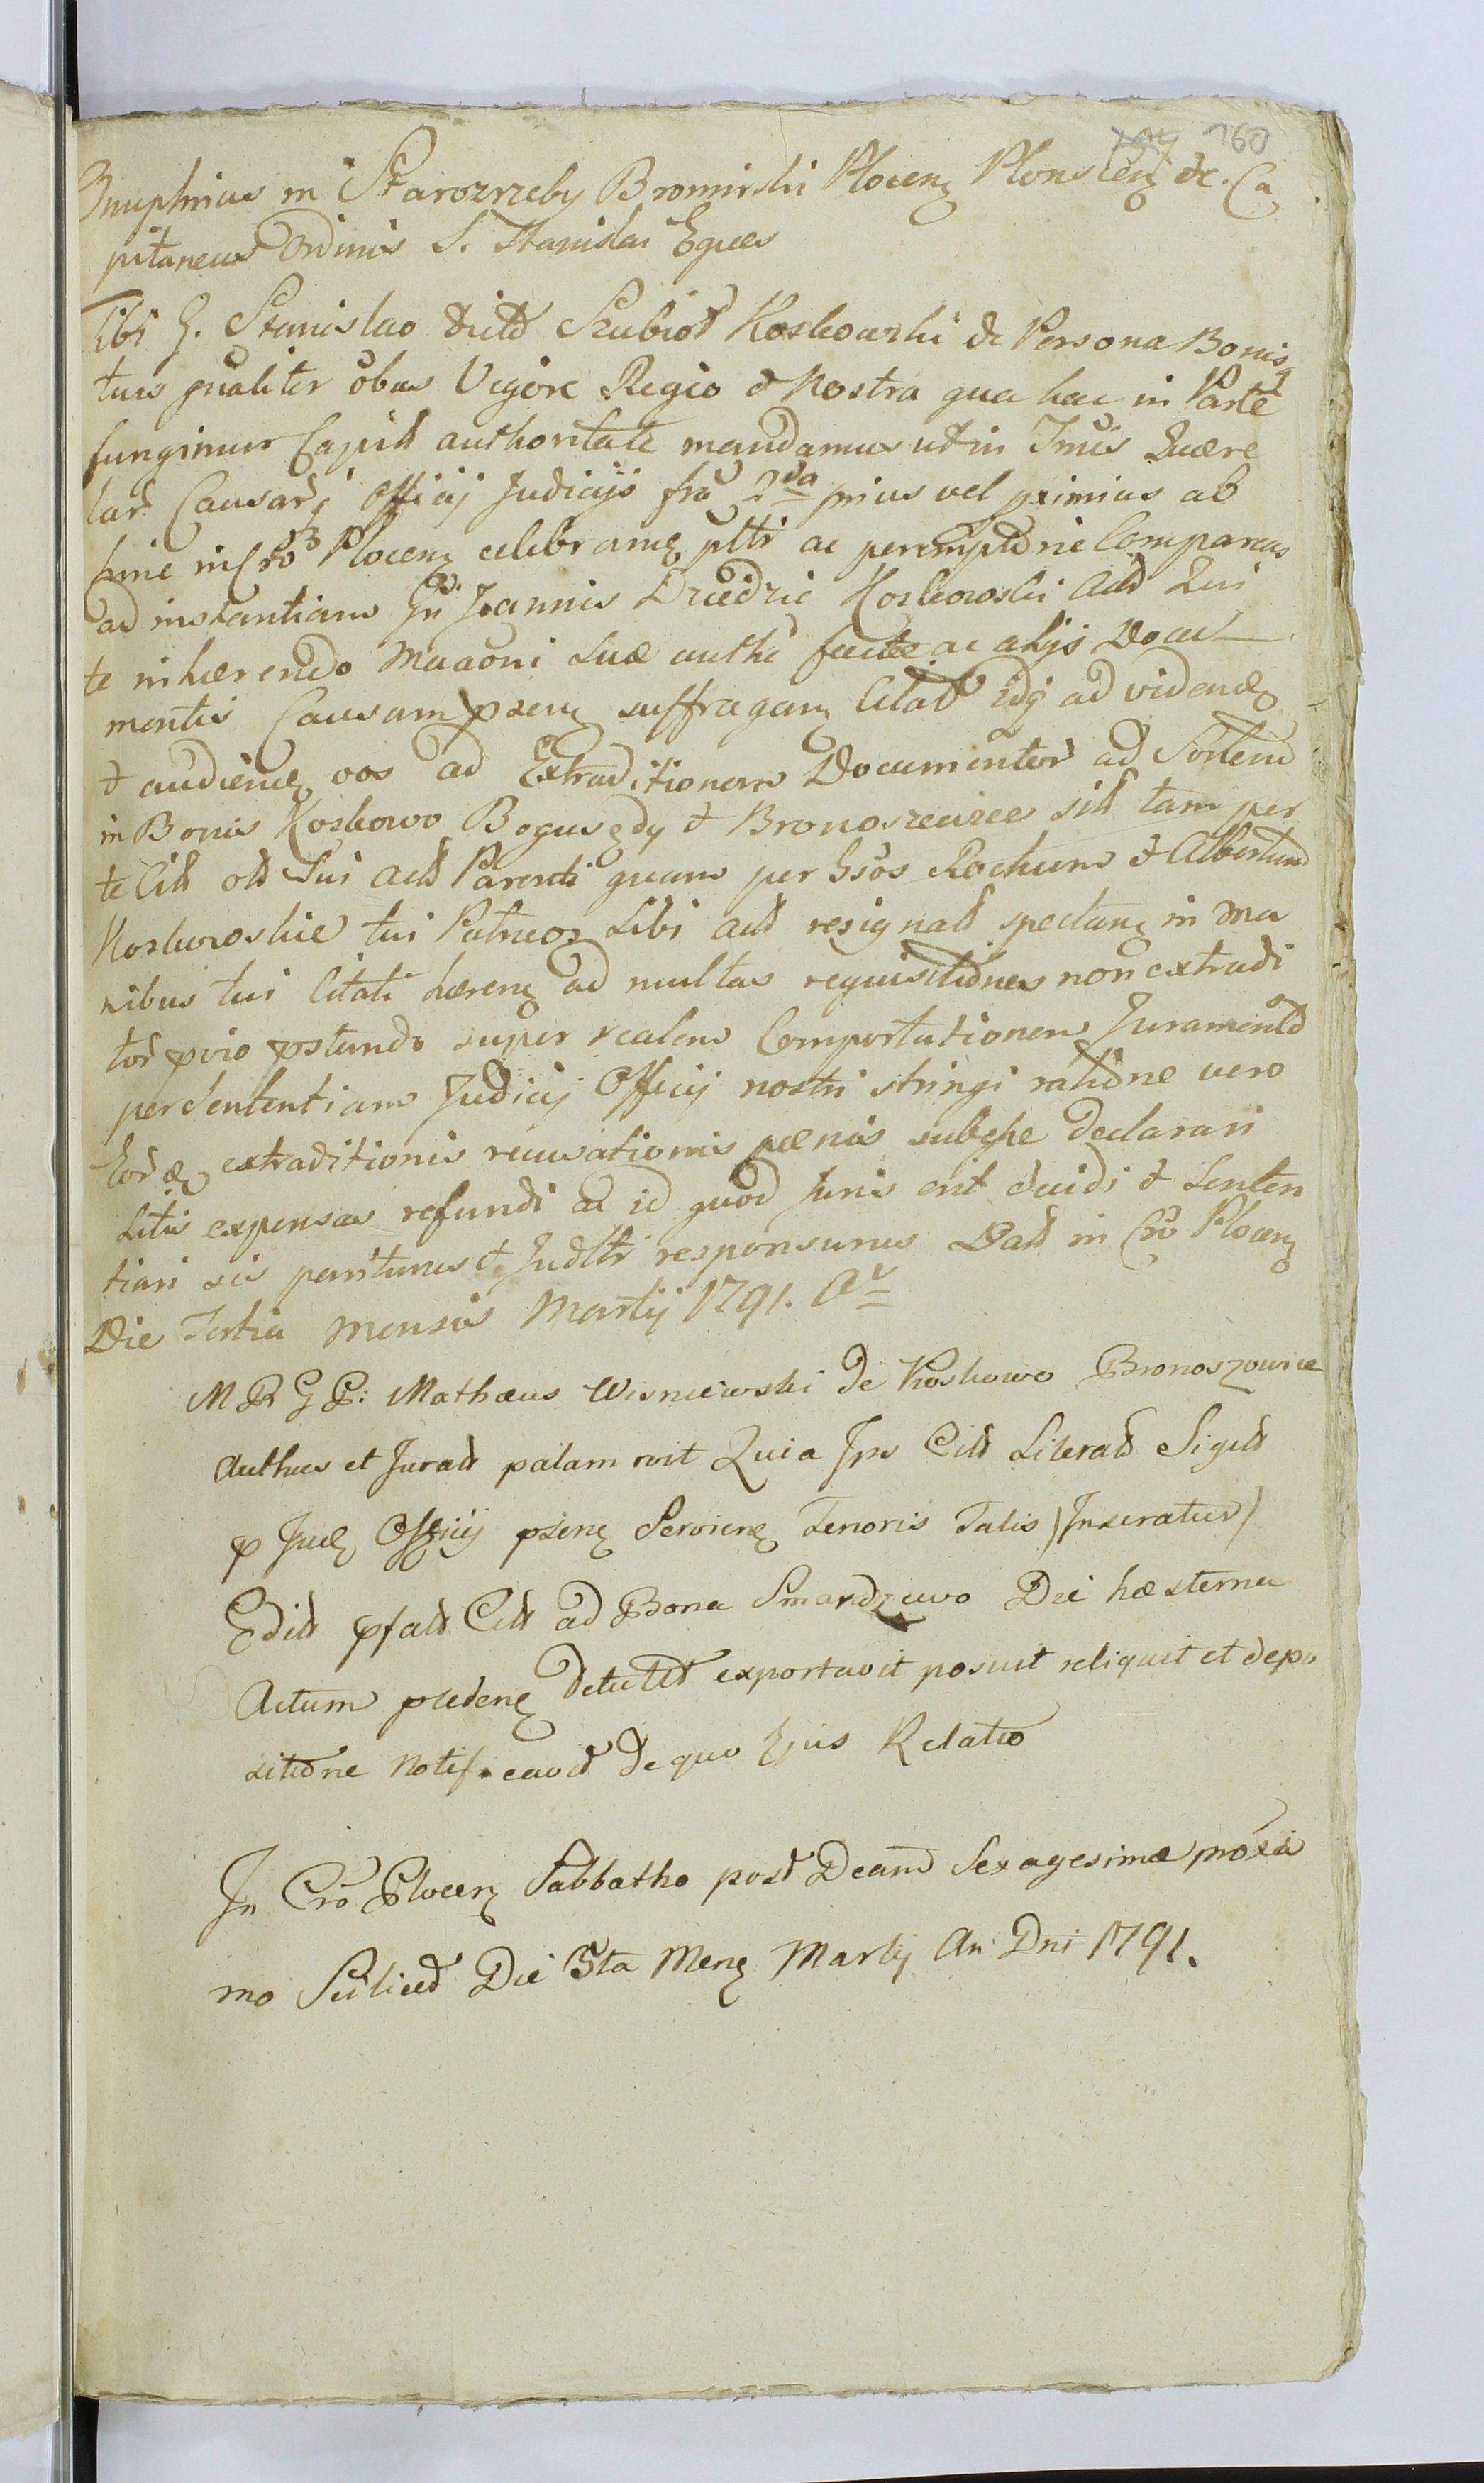 160
Onuphrius in Starozrzeby Bromirski Plocen Plonscen &c. Ca
pitaneus Ordinis S. Stanislai Eques
Tibi G. Stanislao dicto Szubiot Koskowski de Persona Bonisq
tuis gnaliter obus Vigore Regio & Nostra qua hac in Parte
fungimur Capitt authoritate mandamus ut in Tmis Quere
lar Causarq Officij Judicijs fra 2da prius vel primius ab
hinc in Cro Plocen celebranę pltr ac peremptorie Compareas
ad instantiam Gn Joannis Dziedzic Koskowski Act Qui
te inhærendo Maaoni suæ autheæ factæ ac alijs Docu
mentis Causam pzen suffragan Citat idq ad videnę
& audienę vos ad Extraditionem Documentor ad Sortem
in Bonis Koskowo Bogusędy & Bronoszewice sitt tam per
te Citt ott Sui Actt Parenti quam per Gsos Rochum & Albertum
Koskowskie tui Patruos Sibi Actt resignatt spectanę in Ma
nibus tui Citati hæren ad multas requisitiones non extradi
tor pvio pstando super realem Comportationem Juramento
per Sententiam Judicij Officij nostri stringi ratione vero
Eordę extraditionis recusationis pænas subejse declarari
Litis expensas refundi ac id quod Juris erit decidi & Senten
tiari sis pariturus & Judltr responsurus Datt in Cro Plocen
Die Tertia Mensis Martij 1791. Av
M R G P: Mathæus Wisniewski de Koskowo Bronoszewice
Authus et Juratt palam rvit Quia Jps Citt Literatt Sigitt
p Jud Officij pzen Servienę Tenoris Talis /Inseratur/
Edid pfatt Citt ad Bona Smardzewo Die hæsterna
Actum pcedenę detulit exportavit posuit reliquit et depo
sitione Notificavit de quo Ejus Relatio
In Cro Plocen Sabbatho post Dcam Sexagesimæ proxi
mo Scilicet Die 5ta Menę Martij An Dni 1791.